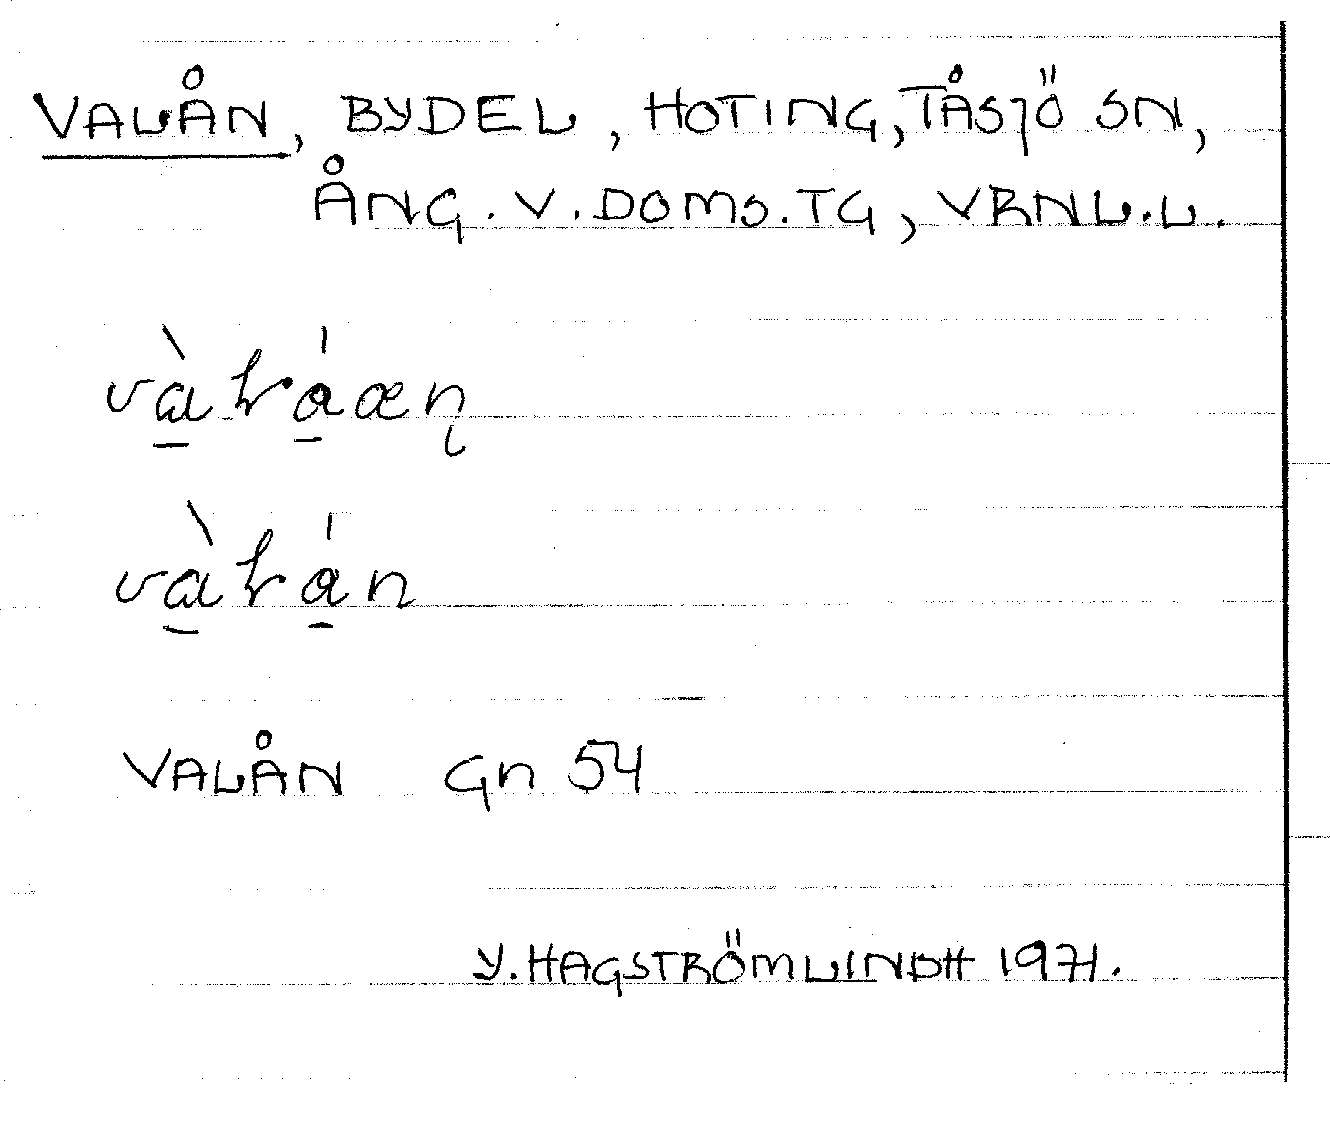 VALÅN, BYDEL, HOTING, TÅSJÖ SN,
ÅNG. V. DOMS. TG, VRNL.L.
VALÅN Gn 54
Y. HAGSTRÖMLINDH 1971.